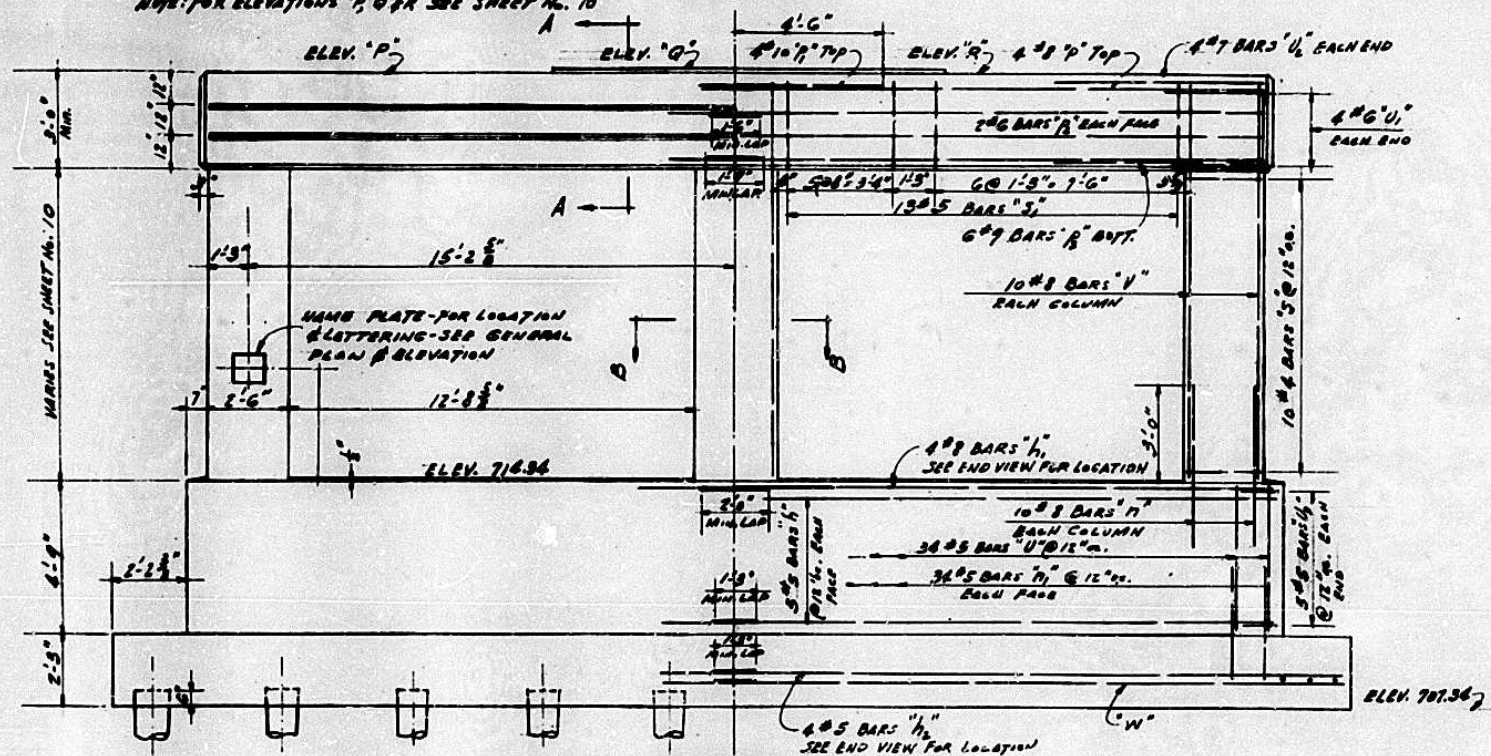 NOTE: FOR ELEVATIONS P, Q & R SEE SHEET No. 10
A
4'-6"
ELEV. "P"
ELEV. "Q"
4 #10 "P1" TOP
ELEV. "R"
4 #8 "P" TOP
4 #7 BARS "U2" EACH END
3'-0"
MIN.
12"
12"
12"
1'-6"
MIN. LAP
2 #6 BARS "P2" EACH FACE
4 #6 "U1"
EACH END
1'-9"
MIN. LAP
5@8"=3'-4"
1'-3"
6@ 1'-3"= 7'-6"
A
13 #5 BARS "S1"
6 #9 BARS "P3" BOTT.
VARIES SEE SHEET No. 10
1'-3"
15'-2 5/8"
10 #8 BARS "V"
EACH COLUMN
10 #4 BARS "S" @ 12" o.c.
NAME PLATE-FOR LOCATION
& LETTERING-SEE GENERAL
PLAN & ELEVATION
B
B
7"
2'-6"
12'-8 5/8"
3'-0"
ELEV. 714.34
4 #8 BARS "h1"
SEE END VIEW FOR LOCATION
2'-0"
MIN. LAP
10 #8 BARS "n"
EACH COLUMN
4'-9"
5 #5 BARS "h"
@ 12" o.c. EACH
FACE
34 #5 BARS "U" @ 12" o.c.
34 #5 BARS "n1" @ 12" o.c.
EACH FACE
@ 12" o.c. EACH
END
1'-3"
MIN. LAP
MIN. LAP
2'-3"
6"
ELEV. 707.34
4 #5 BARS "h2"
SEE END VIEW FOR LOCATION
"W"